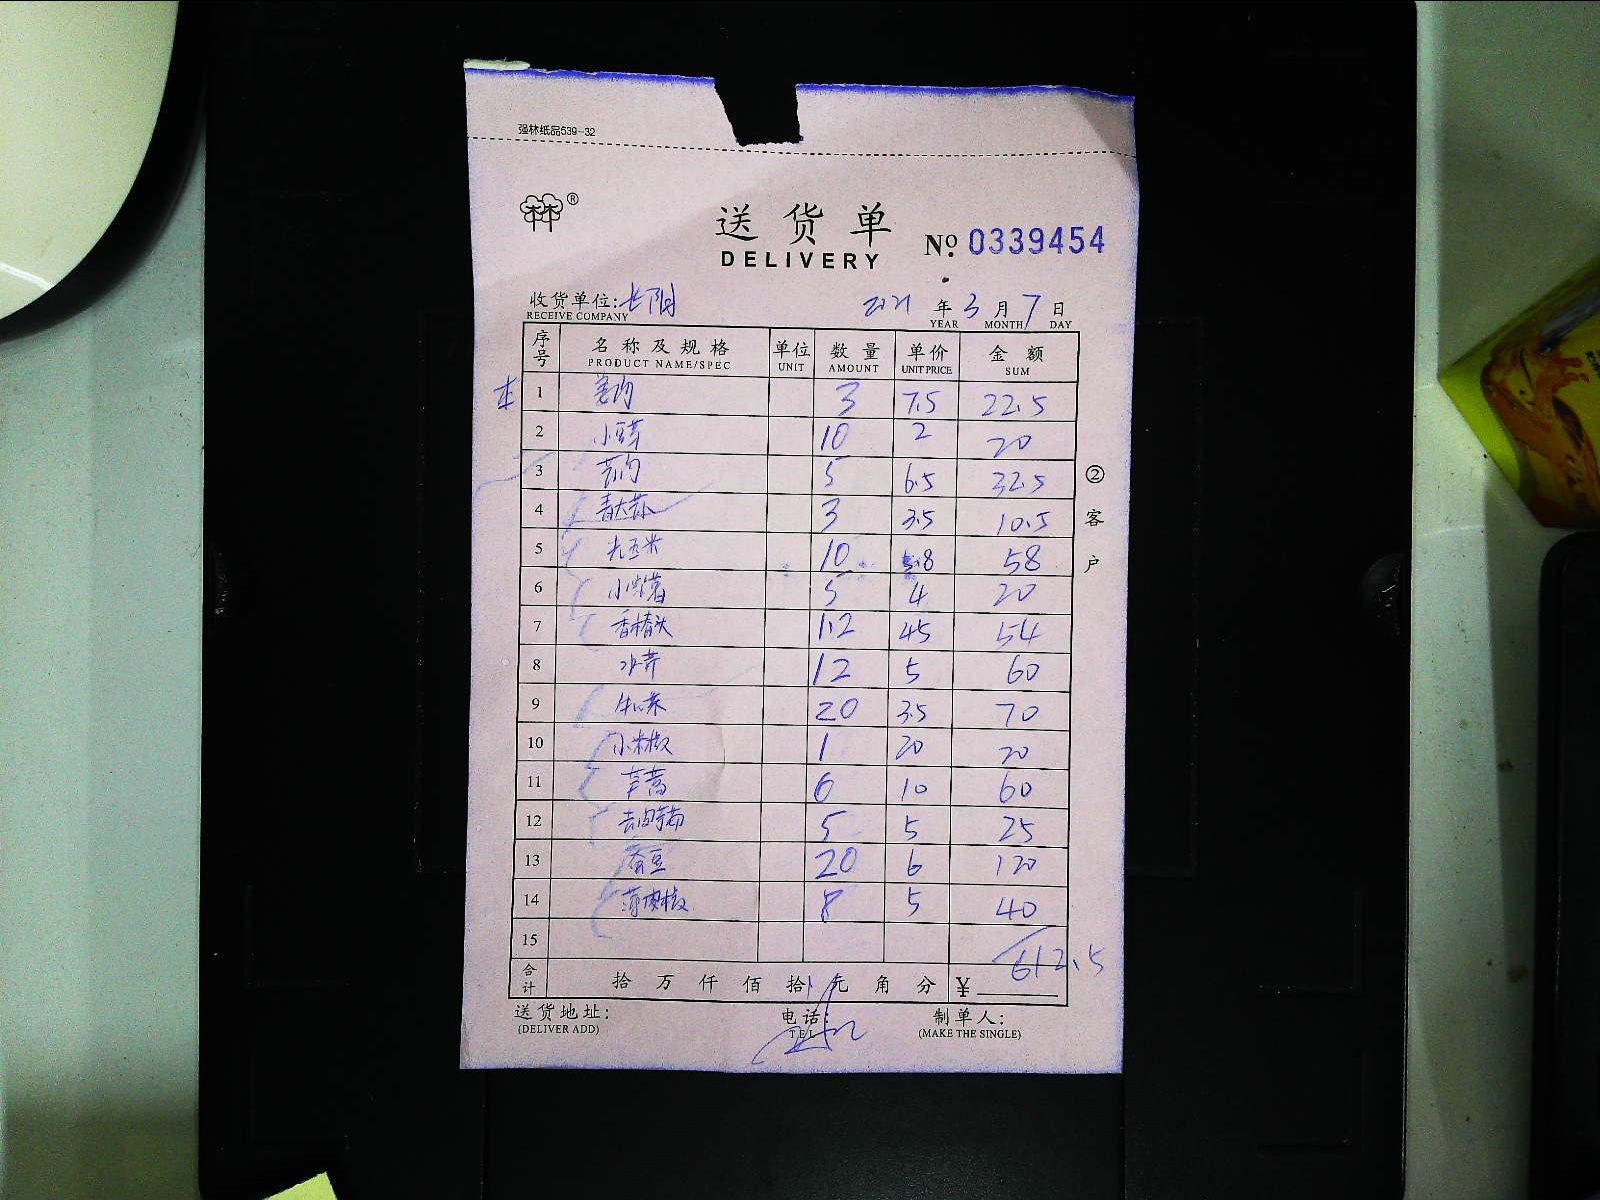 强林纸品539-32
林林®
送货单 No. 0339454
DELIVERY
收货单位: 长阳 2021 年 3 月 7 日
RECEIVE COMPANY YEAR MONTH DAY
序号 名称及规格 单位 数量 单价 金额
PRODUCT NAME/SPEC UNIT AMOUNT UNIT PRICE SUM
1 3 7.5 22.5
2 小豆芽 10 2 20
3 5 6.5 32.5
4 3 3.5 10.5
5 10 5.8 58
6 小紫薯 5 4 20
7 香椿头 1.2 45 54
8 水芹 12 5 60
9 牛心菜 20 3.5 70
10 小米椒 1 20 20
11 6 10 60
12 5 5 25
13 蚕豆 20 6 120
14 薄皮椒 8 5 40
15
612.5
合计 拾 万 仟 佰 拾 元 角 分 ¥
② 客户
送货地址: 电话: 制单人:
(DELIVER ADD) TEL (MAKE THE SINGLE)